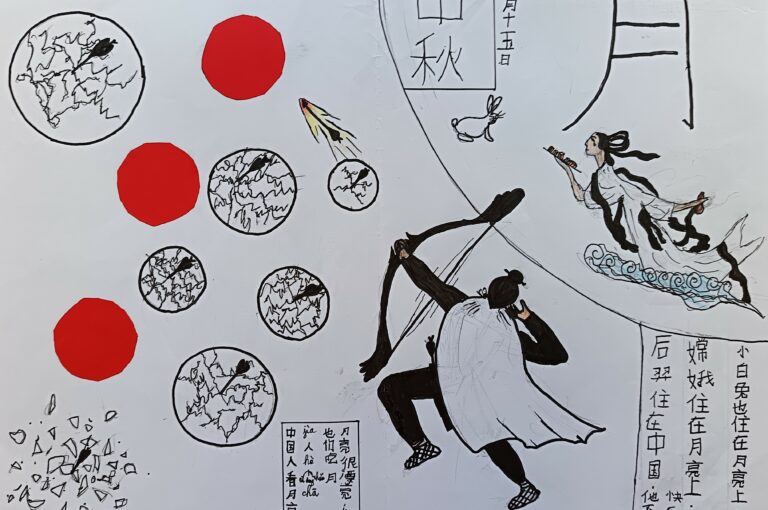 月
月十五日
中秋
小白兔也住在月亮上
嫦娥住在月亮上.
快
后羿住在中国.他
月亮很漂亮
他们吃月
jia 人 hē chā
中国人看月亮